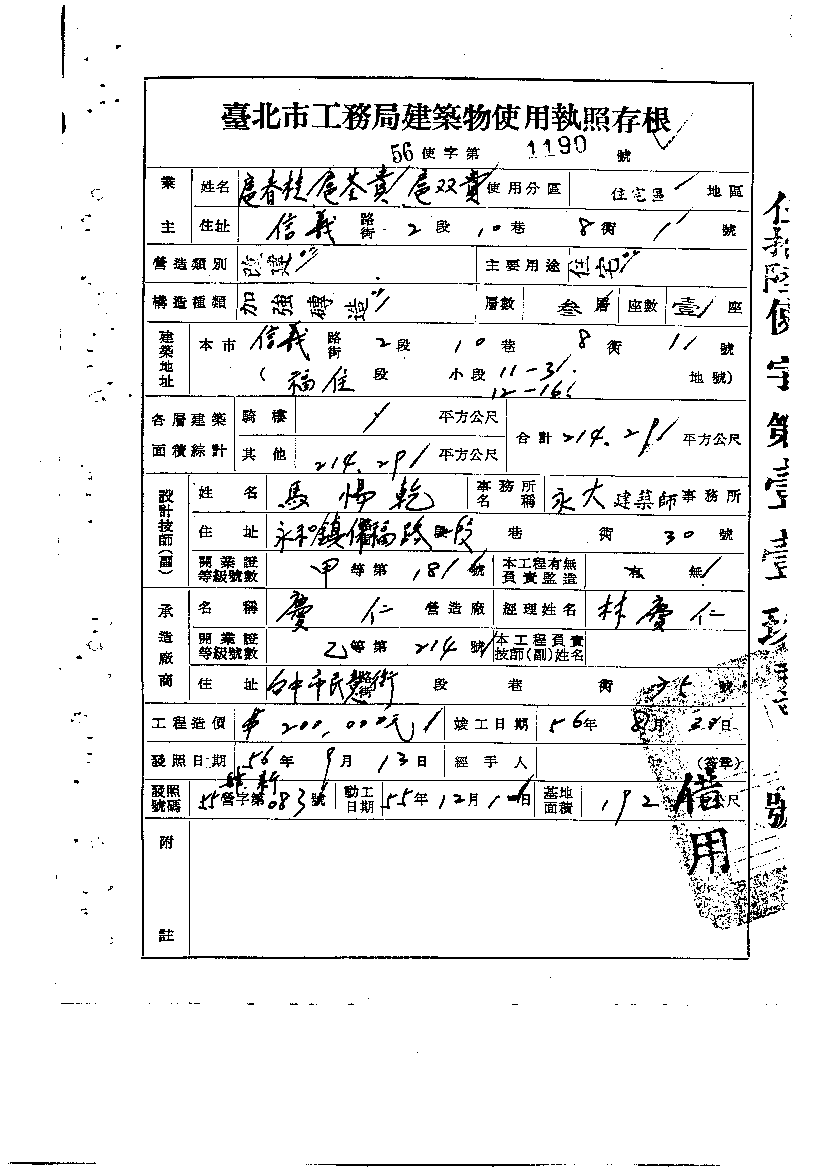 臺北市工務局建築物使用執照存根
56 使字第 1190 號
業主 姓名 使用分區 住宅區 地區
住址 信義 路街 2 段 10 巷 8 衖 1 號
營造類別 改建 主要用途 住宅
構造種類 加強磚造 層數 叁層 座數 壹 座
建築地址 本市 信義 路街 2 段 10 巷 8 衖 11 號
( 福住 段 小段 11-31 地號)
12-16
各層建築面積綜計 騎樓 / 平方公尺 合計 214.29 平方公尺
其他 214.29 平方公尺
設計技師(副) 姓名 馬惕乾 事務所名稱 永大建築師事務所
住址 永和鎮 福路 段 巷 衖 30 號
開業證等級號數 甲等第 1816 號 本工程有無負責監造 有 無
承造廠商 名稱 慶仁 營造廠 經理姓名 林慶仁
開業證等級號數 乙等第 214 號 本工程負責技師(副)姓名
住址 台中市民 街 段 巷 衖 35 號
工程造價 200,000元 竣工日期 56年 8月 30日
發照日期 56年 9月 13日 經手人 (簽章)
發照號碼 55 營字第 083 號 動工日期 55年 12月 10日 基地面積 192 公尺
附註
借用
伍拾陸使字第壹壹玖零號